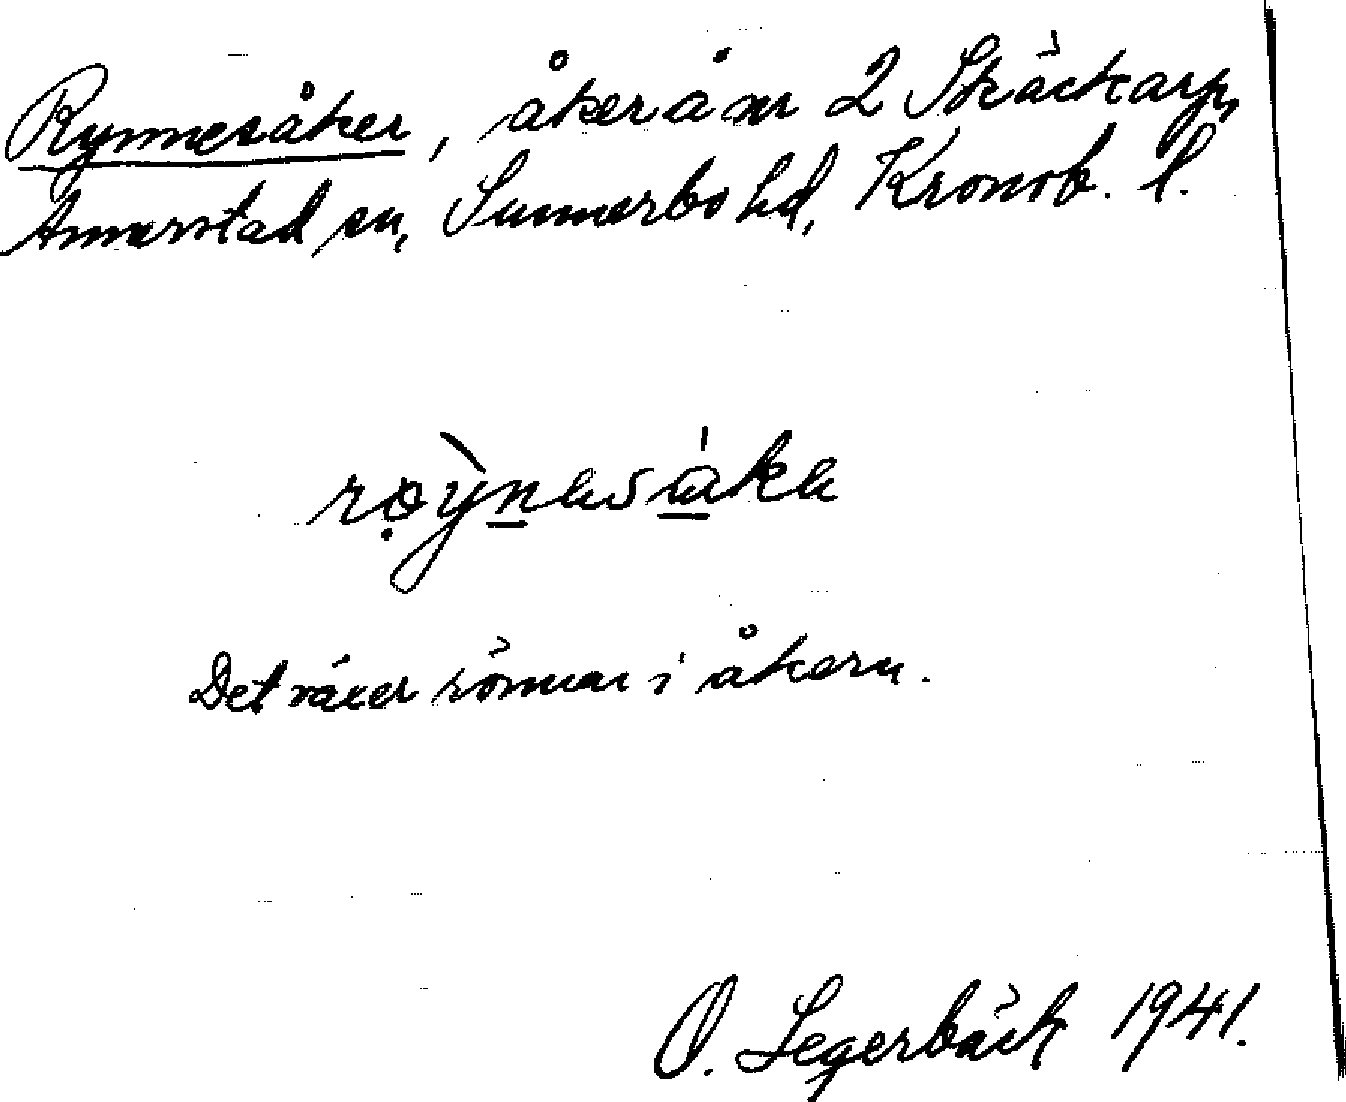 Rynnesåker, åker å nr 2 Skäckarp,
Annerstad sn, Sunnerbo hd, Kronob. l.
Det växer rönnar i åkern.
O. Segerbäck 1941.